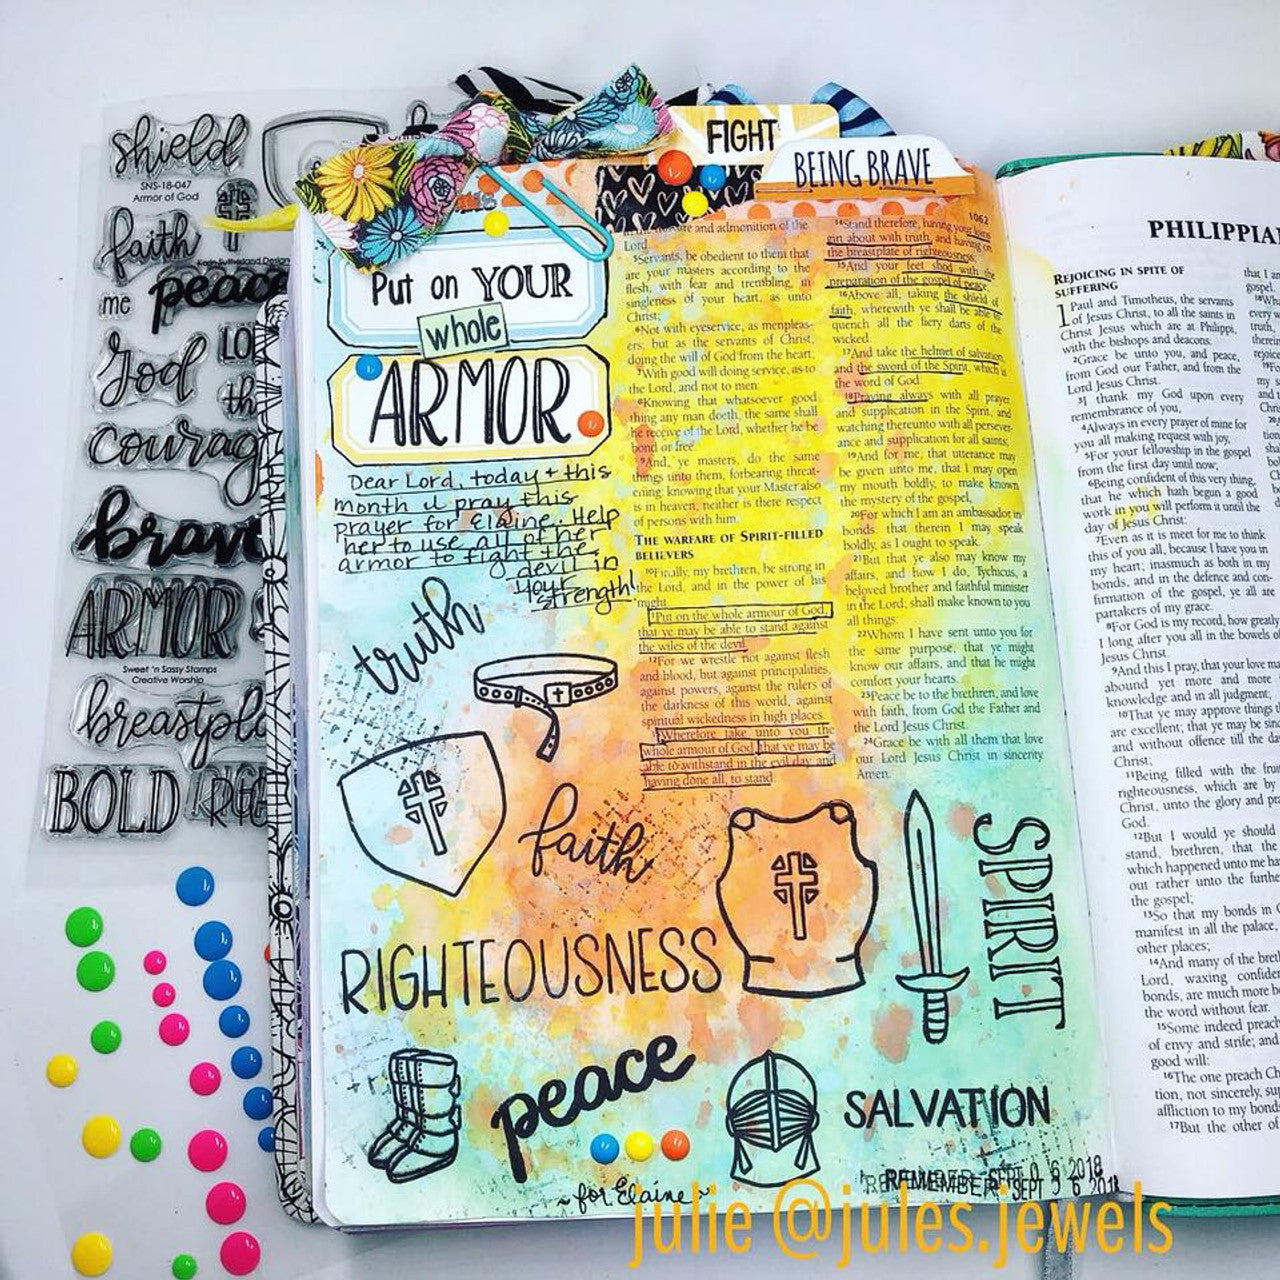 shield
SNS-18-047
Armor of God
faith
Karin Sutherland Designs
me
peace
God
LO
th
courag
brave
ARMOR
Sweet 'n Sassy Stamps
Creative Worship
breastpla
BOLD
FIGHT
BEING BRAVE
Put on YOUR
whole
ARMOR
Dear Lord, today + this
month I pray this
prayer for Elaine. Help
her to use all of her
armor to fight the
devil in
your
strength!
truth
faith
RIGHTEOUSNESS
SPIRIT
peace
SALVATION
~for Elaine~
REMEMBER SEPT 0 6 2018
julie @jules.jewels
and admonition of the
Lord.
5Servants, be obedient to them that
are your masters according to the
flesh, with fear and trembling, in
singleness of your heart, as unto
Christ;
6Not with eyeservice, as menpleas-
ers; but as the servants of Christ,
doing the will of God from the heart;
7With good will doing service, as to
the Lord, and not to men:
8Knowing that whatsoever good
thing any man doeth, the same shall
he receive of the Lord, whether he be
bond or free.
9And, ye masters, do the same
things unto them, forbearing threat-
ening: knowing that your Master also
is in heaven; neither is there respect
of persons with him.
THE WARFARE OF SPIRIT-FILLED
BELIEVERS
10Finally, my brethren, be strong in
the Lord, and in the power of his
might.
11Put on the whole armour of God,
that ye may be able to stand against
the wiles of the devil.
12For we wrestle not against flesh
and blood, but against principalities,
against powers, against the rulers of
the darkness of this world, against
spiritual wickedness in high places.
13Wherefore take unto you the
whole armour of God, that ye may be
able to withstand in the evil day, and
having done all, to stand.
1062
14Stand therefore, having your loins
girt about with truth, and having on
the breastplate of righteousness;
15And your feet shod with the
preparation of the gospel of peace;
16Above all, taking the shield of
faith, wherewith ye shall be able to
quench all the fiery darts of the
wicked.
17And take the helmet of salvation,
and the sword of the Spirit, which is
the word of God:
18Praying always with all prayer
and supplication in the Spirit, and
watching thereunto with all persever-
ance and supplication for all saints;
19And for me, that utterance may
be given unto me, that I may open
my mouth boldly, to make known
the mystery of the gospel,
20For which I am an ambassador in
bonds: that therein I may speak
boldly, as I ought to speak.
21But that ye also may know my
affairs, and how I do, Tychicus, a
beloved brother and faithful minister
in the Lord, shall make known to you
all things:
22Whom I have sent unto you for
the same purpose, that ye might
know our affairs, and that he might
comfort your hearts.
23Peace be to the brethren, and love
with faith, from God the Father and
the Lord Jesus Christ.
24Grace be with all them that love
our Lord Jesus Christ in sincerity.
Amen.
PHILIPPIA
REJOICING IN SPITE OF
SUFFERING
1Paul and Timotheus, the servants
of Jesus Christ, to all the saints in
Christ Jesus which are at Philippi,
with the bishops and deacons:
2Grace be unto you, and peace,
from God our Father, and from the
Lord Jesus Christ.
3I thank my God upon every
remembrance of you,
4Always in every prayer of mine for
you all making request with joy,
5For your fellowship in the gospel
from the first day until now;
6Being confident of this very thing,
that he which hath begun a good
work in you will perform it until the
day of Jesus Christ:
7Even as it is meet for me to think
this of you all, because I have you in
my heart; inasmuch as both in my
bonds, and in the defence and con-
firmation of the gospel, ye all are
partakers of my grace.
8For God is my record, how greatly
I long after you all in the bowels of
Jesus Christ.
9And this I pray, that your love may
abound yet more and more
knowledge and in all judgment;
10That ye may approve things
are excellent; that ye may be sin
and without offence till the da
Christ;
11Being filled with the frui
righteousness, which are by
Christ, unto the glory and pra
God.
12But I would ye should
stand, brethren, that the
which happened unto me ha
out rather unto the furthe
the gospel;
13So that my bonds in
manifest in all the palace,
other places;
14And many of the bret
Lord, waxing confiden
bonds, are much more b
the word without fear.
15Some indeed preach
of envy and strife; and
good will:
16The one preach Ch
tion, not sincerely, sup
affliction to my bond
17But the other of